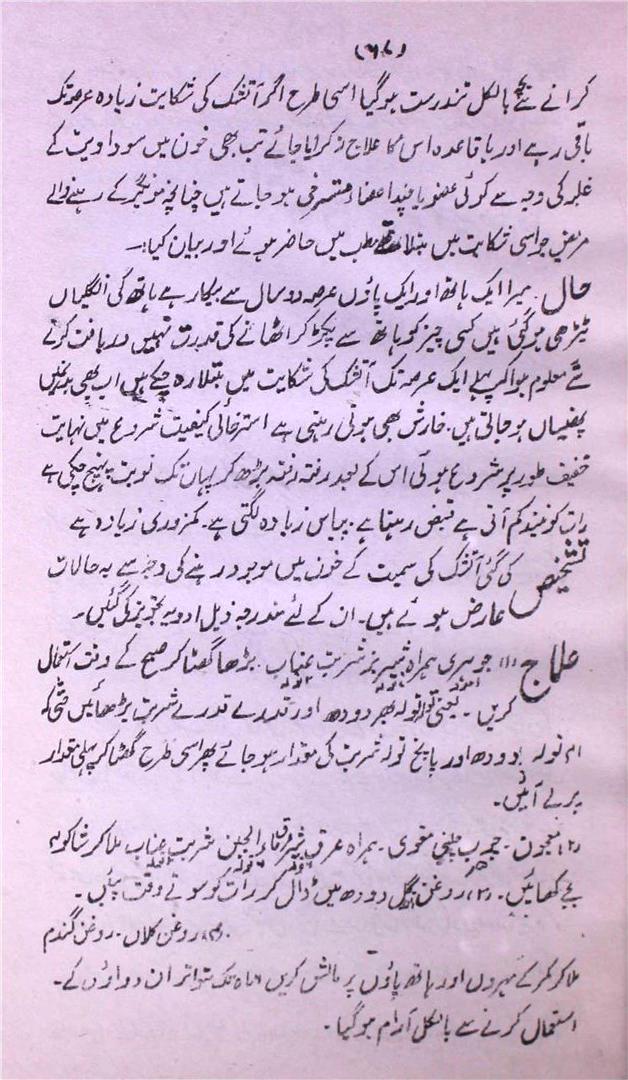 (۶۸)
کرانے سے بالکل تندرست ہوگیا اسی طرح اگر آتشک کی شکایت زیادہ عرصہ تک
باقی رہے اور باقاعدہ اس کا علاج نہ کرایا جائے تب بھی خون میں سوداویت کے
غلبہ کی وجہ سے کوئی عضو یا چند اعضاء مسترخی ہو جاتے ہیں چنانچہ مونگیر کے رہنے والے
مریض جو اسی شکایت میں مبتلا تھے مطب میں حاضر ہوئے اور بیان کیا:۔
حال ۔ میرا ایک ہاتھ اور ایک پاؤں عرصہ دو سال سے بیکار ہے ہاتھ کی انگلیاں
ٹیڑھی ہوگئی ہیں کسی چیز کو ہاتھ سے پکڑ کر اٹھانے کی قدرت نہیں دریافت کرنے
سے معلوم ہوا کہ پہلے ایک عرصہ تک آتشک کی شکایت میں مبتلا رہ چکے ہیں اب بھی
پھنسیاں ہو جاتی ہیں۔ خارش بھی ہوتی رہتی ہے استرخائی کیفیت شروع میں نہایت
خفیف طور پر شروع ہوئی اس کے بعد رفتہ رفتہ بڑھ کر یہاں تک نوبت پہنچ چکی ہے
رات کو نیند کم آتی ہے قبض رہتا ہے۔ پیاس زیادہ لگتی ہے۔ کمزوری زیادہ ہے
تشخیص کی گئی آتشک کی سمیت کے خون میں موجود رہنے کی وجہ سے یہ حالات
عارض ہوئے ہیں۔ ان کے لئے مندرجہ ذیل ادویہ تجویز کی گئیں۔
علاج (۱) جوہری ہمراہ شیر بز شربت عناب ۔ بڑھا گھٹا کر صبح کے وقت استعمال
کریں۔ یعنی تولہ بھر دودھ اور قدرے قدرے شربت بڑھائیں حتیٰ کہ
۱م تولہ دودھ اور پانچ تولہ شربت کی مقدار ہو جائے پھر اسی طرح گھٹا کر پہلی مقدار
پر لے آئیں۔
(۲) معجون۔ چوب چینی مقوی۔ ہمراہ عرق ماء الجبن شربت عناب ملا کر شام کو ۴
بجے کھائیں۔ (۳) روغن گل دودھ میں ڈال کر رات کو سوتے وقت پئیں۔
(۴) روغن کلاں۔ روغن گندم
ملا کر کمر کے مہروں اور ہاتھ پاؤں پر مالش کریں ۶ ماہ تک متواتر ان دواؤں کے۔
استعمال کرنے سے بالکل آرام ہوگیا۔